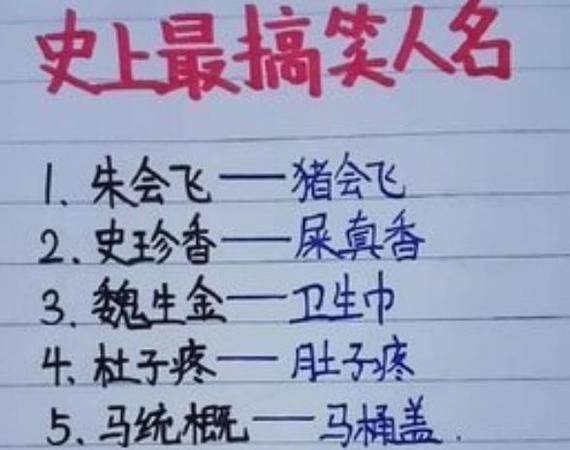 史上最搞笑人名
1. 朱会飞——猪会飞
2. 史珍香——屎真香
3. 魏生金——卫生巾
4. 杜子疼——肚子疼
5. 马统概——马桶盖.